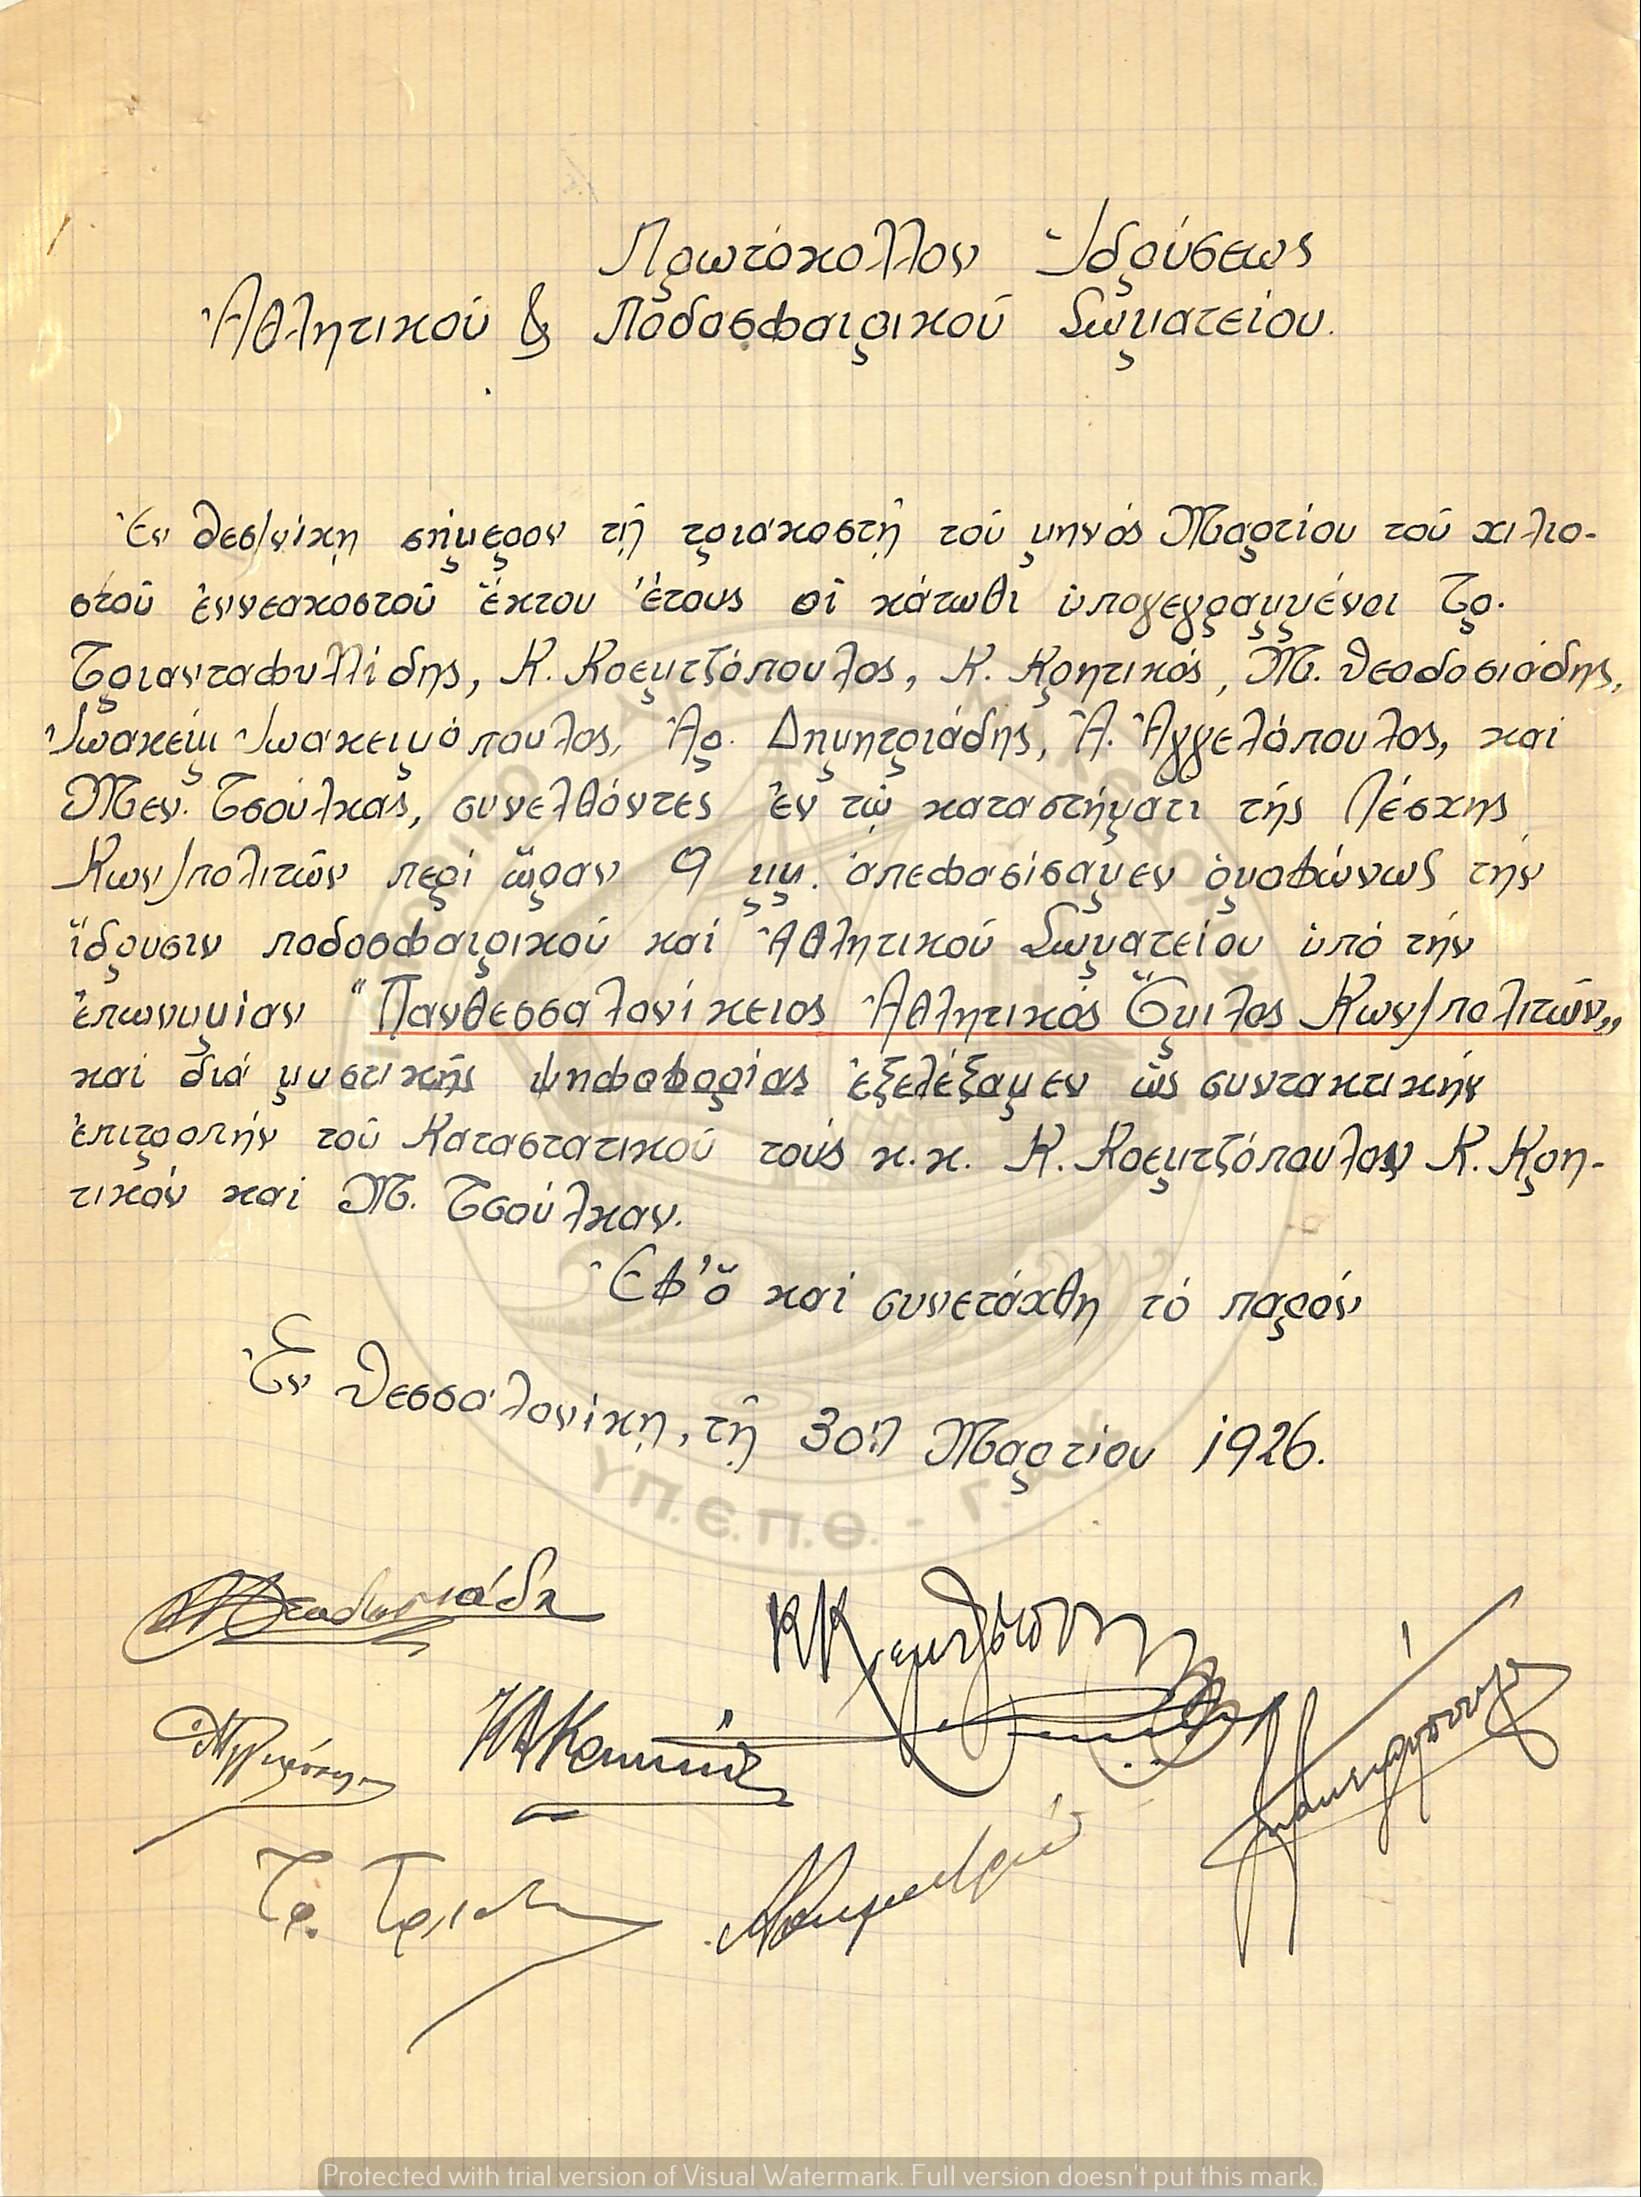 Πρωτόκολλον Ἱδρύσεως
Ἀθλητικοῦ & Ποδοσφαιρικοῦ Σωματείου.
Ἐν Θεσ/νίκῃ σήμερον τῇ τριακοστῇ τοῦ μηνός Μαρτίου τοῦ χιλιο-
στοῦ ἐννεακοστοῦ ἕκτου ἔτους οἱ κάτωθι ὑπογεγραμμένοι Τρ.
Τριανταφυλλίδης, Κ. Κοεμτζόπουλος, Κ. Κρητικός, Μ. Θεοδοσιάδης,
Ἰωακείμ Ἰωακειμόπουλος, Ἀρ. Δημητριάδης, Ἀ. Ἀγγελόπουλος, καί
Μεν. Τσούλκας, συνελθόντες ἐν τῷ καταστήματι τῆς Λέσχης
Κων/πολιτῶν περί ὥραν 9 μμ. ἀπεφασίσαμεν ὁμοφώνως τήν
ἵδρυσιν ποδοσφαιρικοῦ καί Ἀθλητικοῦ Σωματείου ὑπό τήν
ἐπωνυμίαν "Πανθεσσαλονίκειος Ἀθλητικός Ὅμιλος Κων/πολιτῶν„
καί διά μυστικῆς ψηφοφορίας ἐξελέξαμεν ὡς συντακτικήν
ἐπιτροπήν τοῦ Καταστατικοῦ τούς κ.κ. Κ. Κοεμτζόπουλον Κ. Κρη-
τικόν καί Μ. Τσούλκαν.
Ἐφ' ὅ καί συνετάχθη τό παρόν
Ἐν Θεσσαλονίκῃ, τῇ 30ῇ Μαρτίου 1926.
Τρ.
ΥΠ.Ε.Π.Θ. - Γ.
Protected with trial version of Visual Watermark. Full version doesn't put this mark.